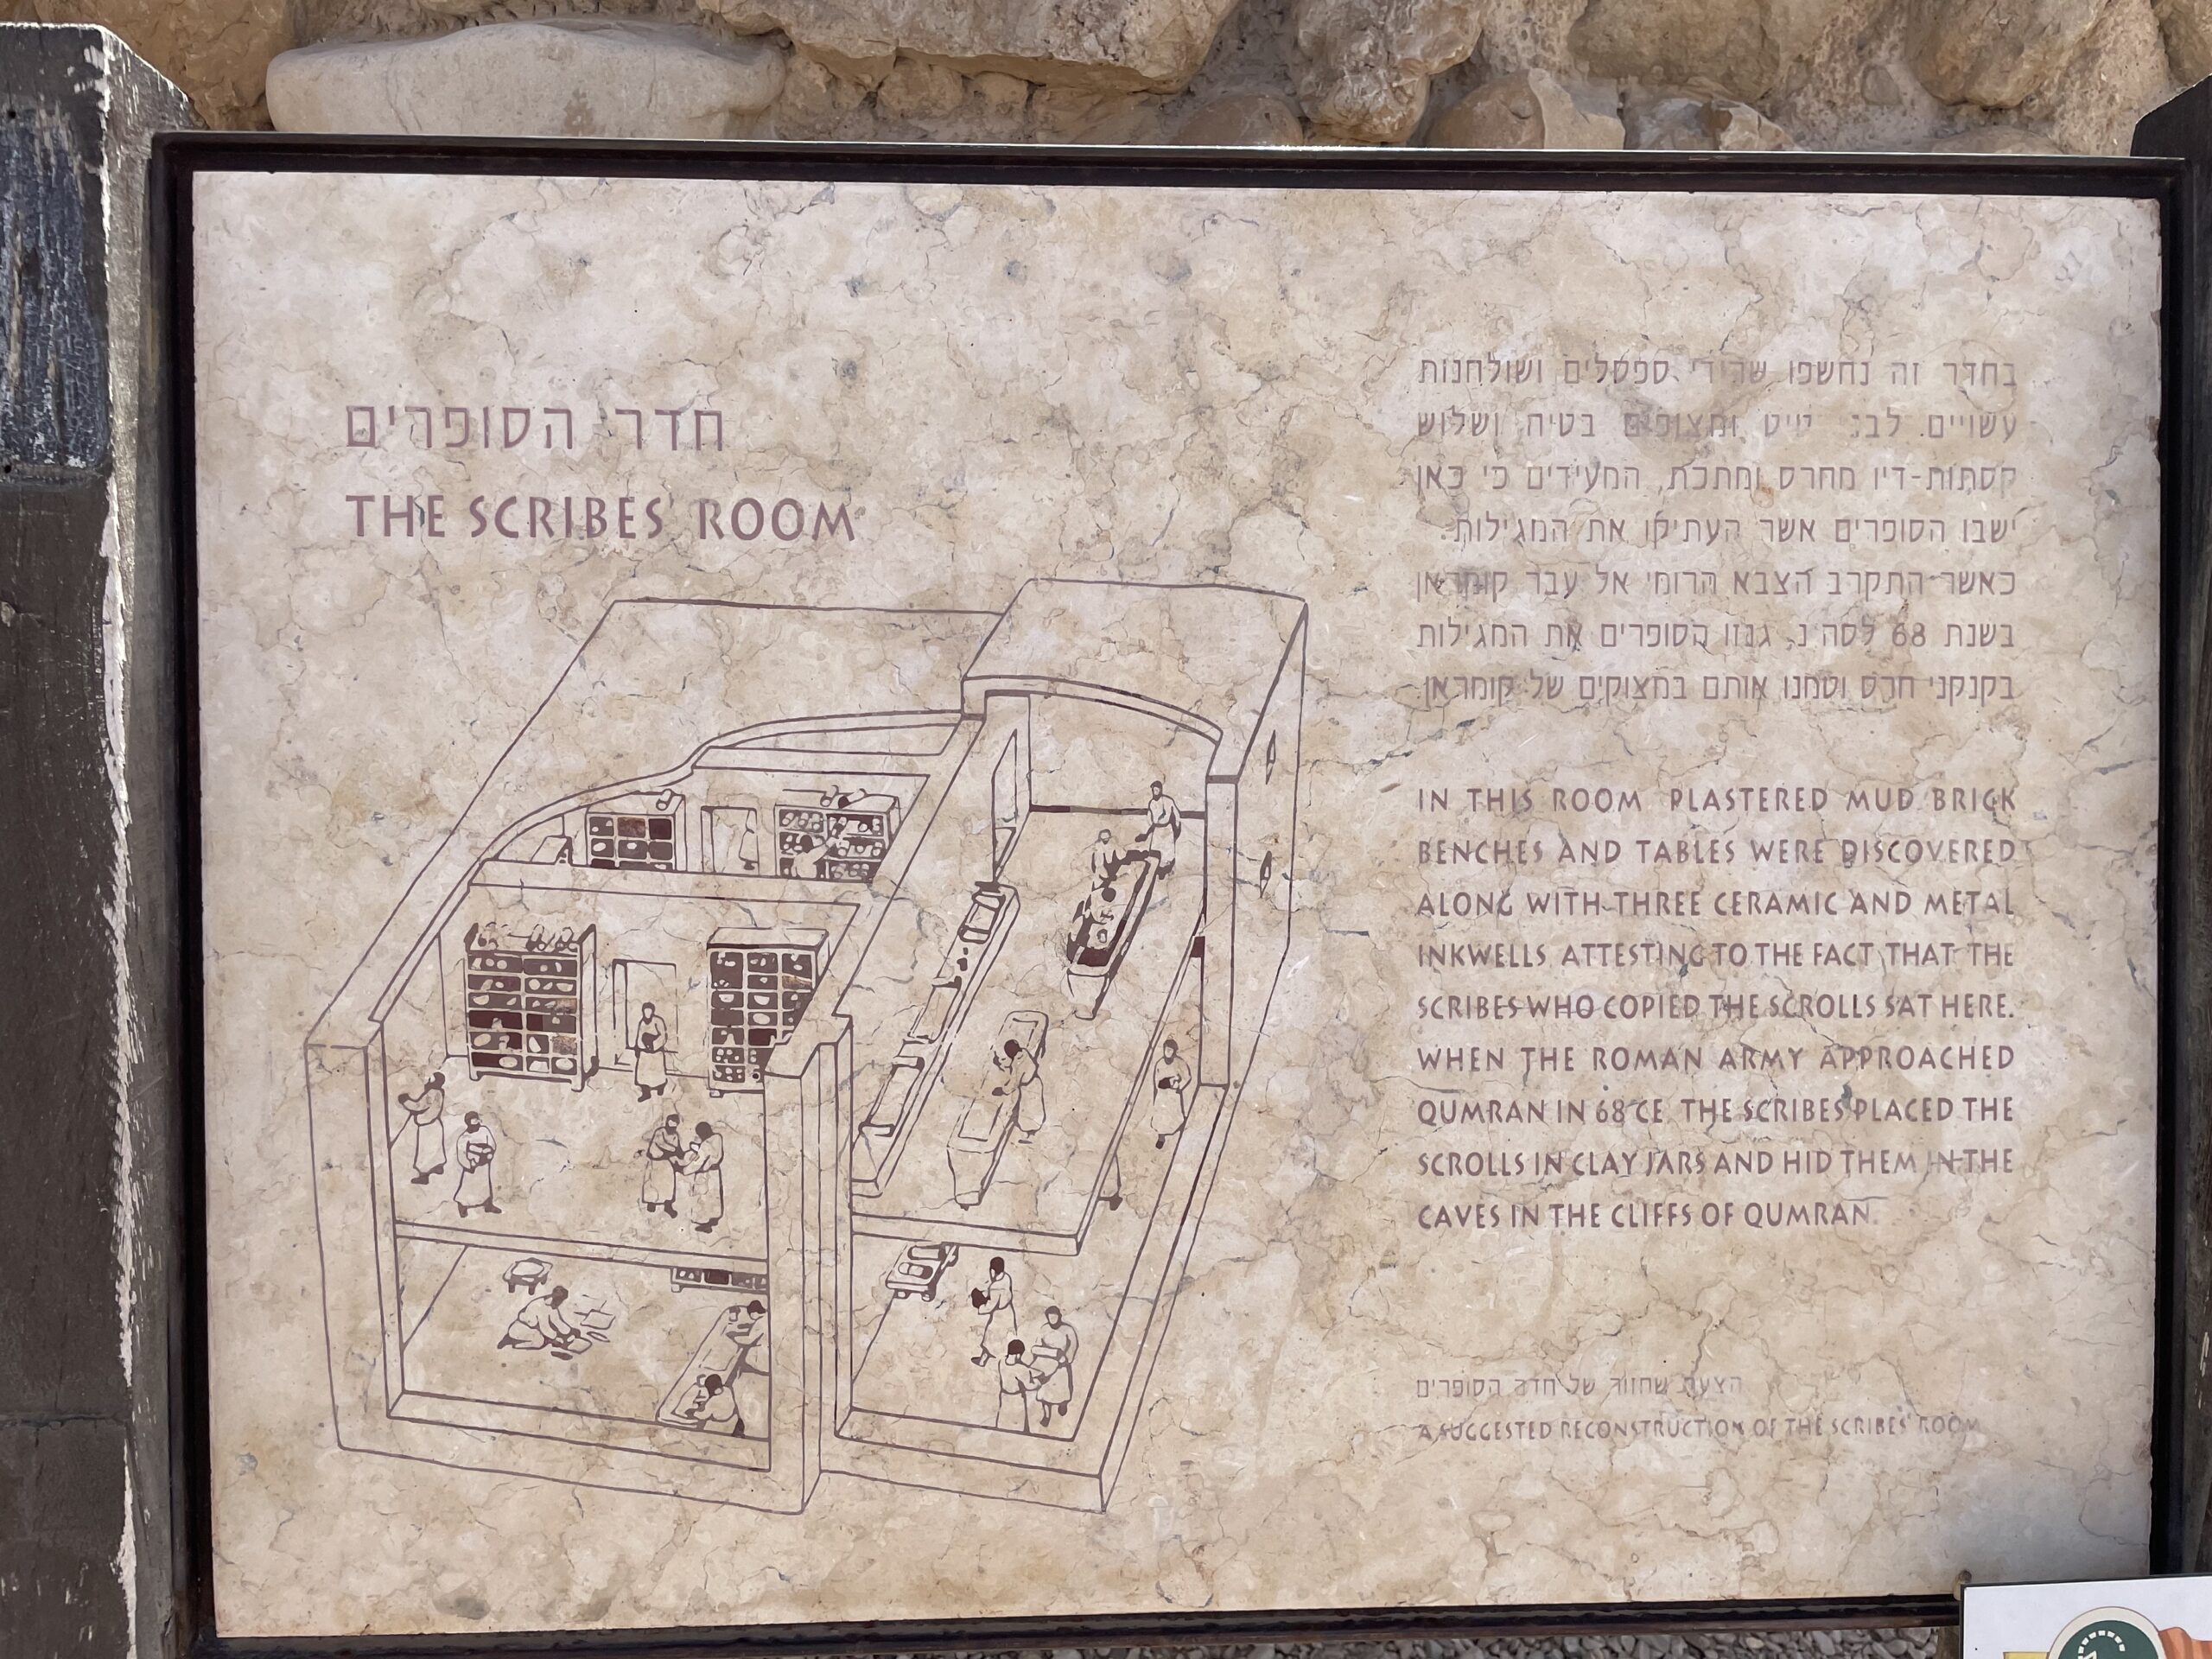 חדר הסופרים
THE SCRIBES' ROOM
בחדר זה נחשפו שרידי ספסלים ושולחנות
עשויים לבני טיט ומצופים בטיח ושלוש
קסתות-דיו מחרס ומתכת, המעידים כי כאן
ישבו הסופרים אשר העתיקו את המגילות.
כאשר התקרב הצבא הרומי אל עבר קומראן
בשנת 68 לסה"נ, גנזו הסופרים את המגילות
בקנקני חרס וטמנו אותם במצוקים של קומראן
IN THIS ROOM PLASTERED MUD BRICK
BENCHES AND TABLES WERE DISCOVERED
ALONG WITH THREE CERAMIC AND METAL
INKWELLS ATTESTING TO THE FACT THAT THE
SCRIBES WHO COPIED THE SCROLLS SAT HERE.
WHEN THE ROMAN ARMY APPROACHED
QUMRAN IN 68 CE, THE SCRIBES PLACED THE
SCROLLS IN CLAY JARS AND HID THEM IN THE
CAVES IN THE CLIFFS OF QUMRAN.
הצעת שחזור של חדר הסופרים
A SUGGESTED RECONSTRUCTION OF THE SCRIBES' ROOM